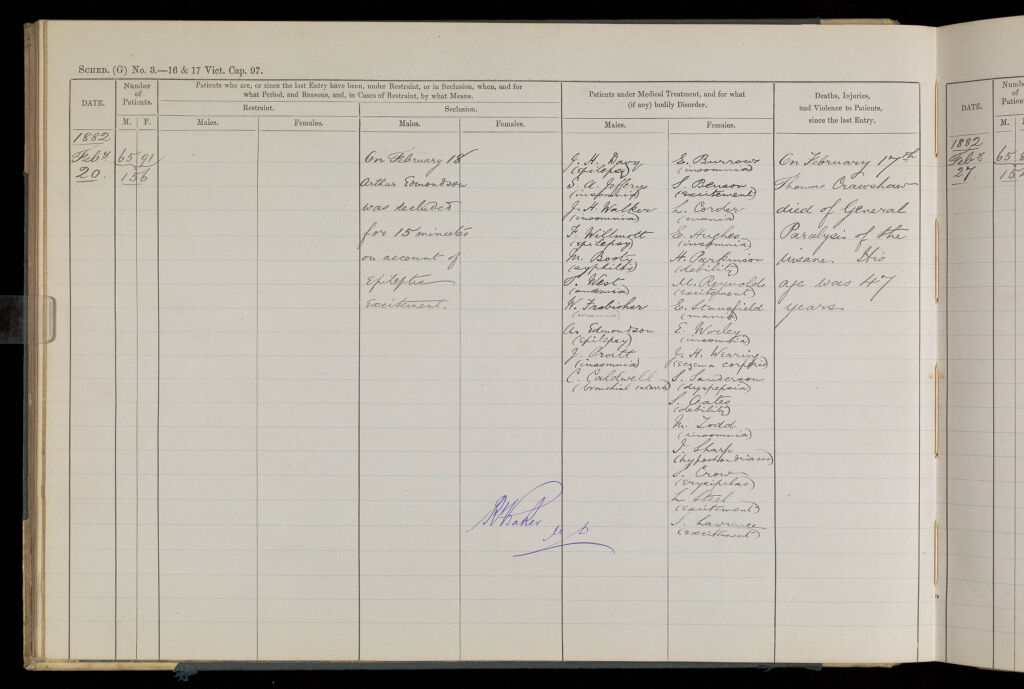 SCHED. (G) No. 3.—16 & 17 Vict. Cap. 97.
DATE.
Number
of
Patients.
M. F.
Patients who are, or since the last Entry have been, under Restraint, or in Seclusion, when, and for
what Period, and Reasons, and, in Cases of Restraint, by what Means.
Restraint.
Seclusion.
Males.
Females.
Males.
Females.
Patients under Medical Treatment, and for what
(if any) bodily Disorder.
Males.
Females.
Deaths, Injuries,
and Violence to Patients,
since the last Entry.
1882
Feby
20.
65 91
156
On February 18
Arthur Edmondson
was secluded
for 15 minutes
on account of
Epileptic
Excitement.
J. H. Davy
(Epilepsy)
S. A. Jefferys
(insomnia)
J. H. Walker
(insomnia)
F. Willmott
(epilepsy)
M. Booty
(syphilis)
T. West
W. Frobisher
(mania)
A. Edmondson
(epilepsy)
J. Pratt
(insomnia)
C. Caldwell
(bronchial catarrh)
E. Burrows
(insomnia)
S. Benson
(excitement)
L. Corder
(mania)
E. Hughes
(insomnia)
H. Parkinson
(debility)
M. Reynolds
(excitement)
E. Stansfield
(mania)
E. Worley
(insomnia)
J. H. Wearing
(Eczema corporis)
S. Sanderson
(dyspepsia)
S. Oates
(debility)
M. Todd
(insomnia)
J. Sharp
(hypochondriasis)
S. Crow
(Erysipelas)
L. Steel
(excitement)
S. Lawrence
(excitement)
On February 17th
Thomas Crawshaw
died of General
Paralysis of the
insane. His
age was 47
years.
Baker
DATE.
M.
1882
Feby
27.
65